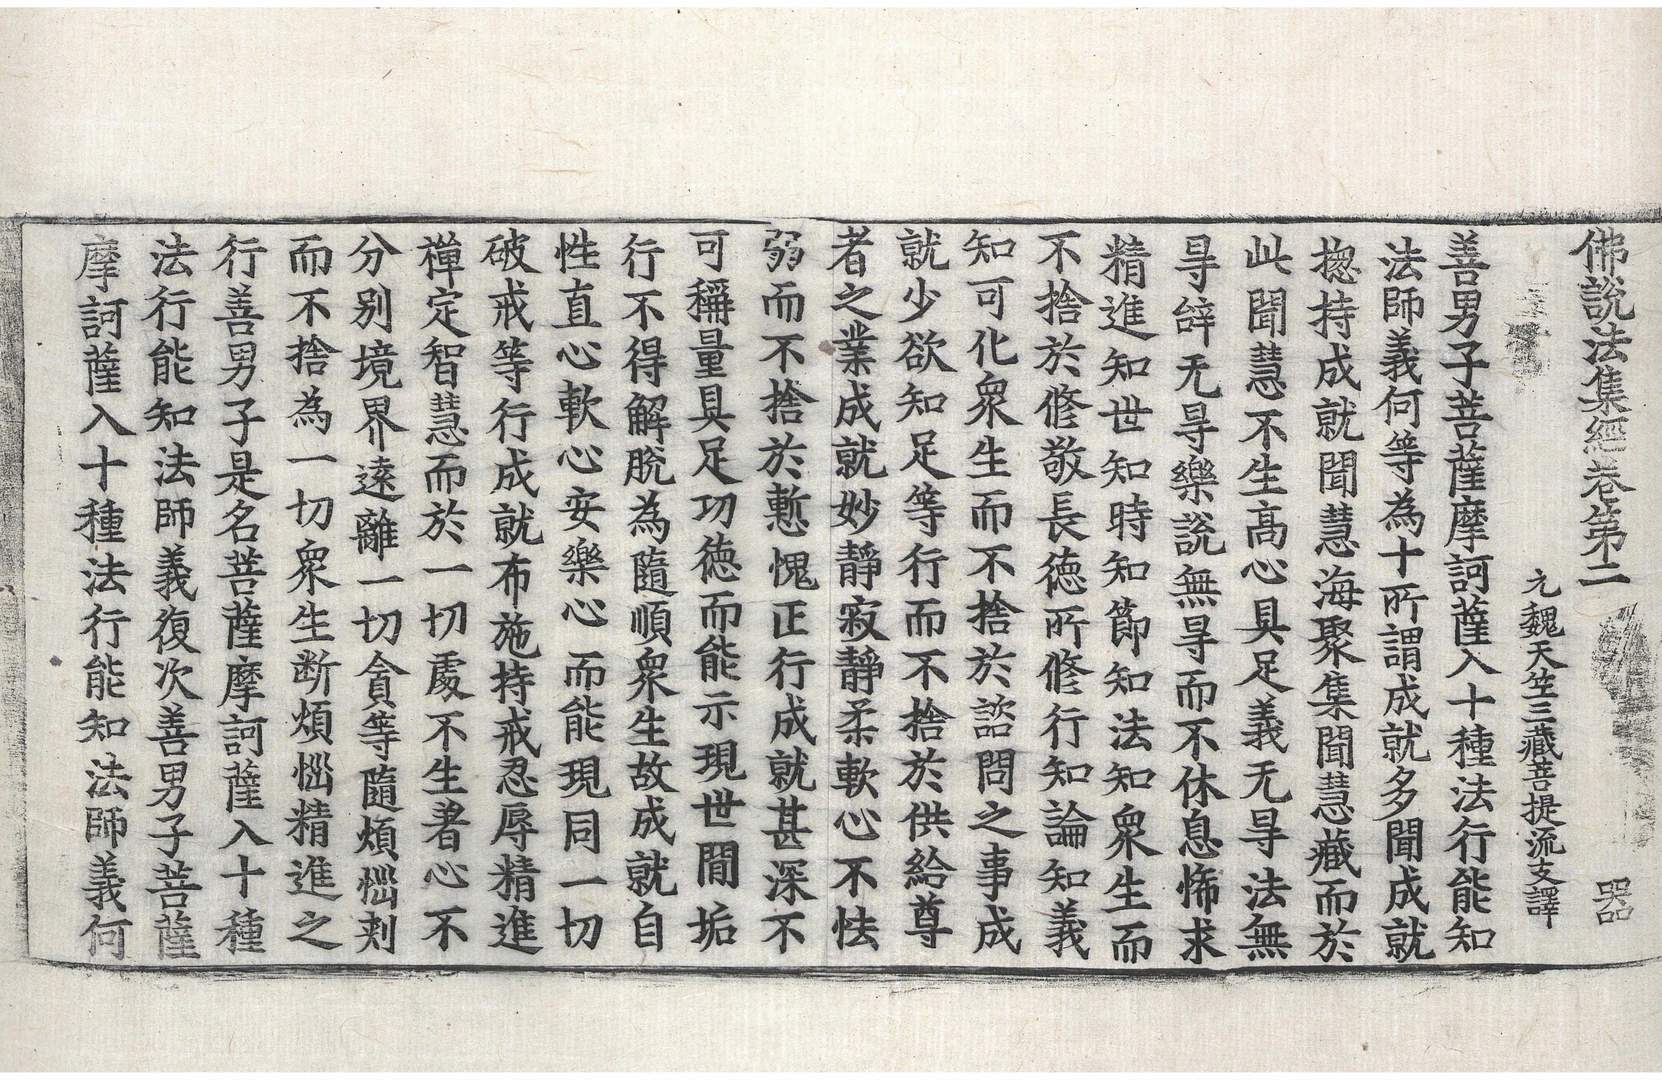 佛說法集經卷第二
器
元魏天竺三藏菩提流支譯
善男子菩薩摩訶薩入十種法行能知
法師義何等為十所謂成就多聞成就
揔持成就聞慧海聚集聞慧藏而於
此聞慧不生髙心具足義无㝵法無
㝵辝无㝵樂說無㝵而不休息悕求
精進知世知時知節知法知衆生而
不捨於修敬長德所修行知論知義
知可化衆生而不捨於諮問之事成
就少欲知足等行而不捨於供給尊
者之業成就妙靜寂靜柔軟心不怯
弱而不捨於慙愧正行成就甚深不
可稱量具足功德而能示現世間垢
行不得解脫為隨順衆生故成就自
性直心軟心安樂心而能現同一切
破戒等行成就布施持戒忍辱精進
禪定智慧而於一切處不生著心不
分别境界遠離一切貪等隨煩惱刾
而不捨為一切衆生断煩惱精進之
行善男子是名菩薩摩訶薩入十種
法行能知法師義復次善男子菩薩
摩訶薩入十種法行能知法師義何